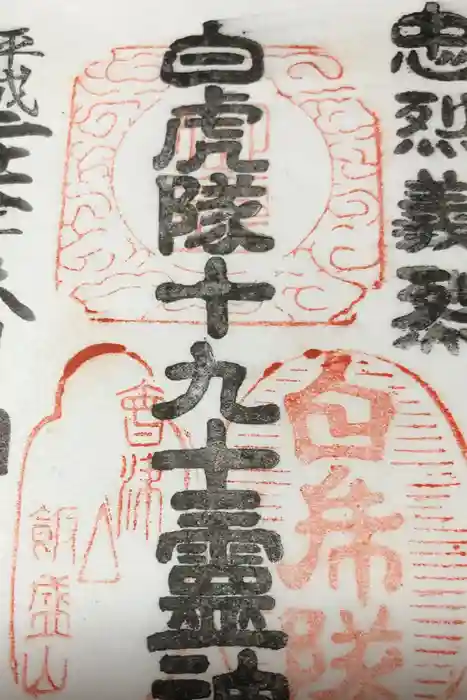 忠烈義
白虎隊十九士霊神
平成二十
白虎隊
會津
飯盛山